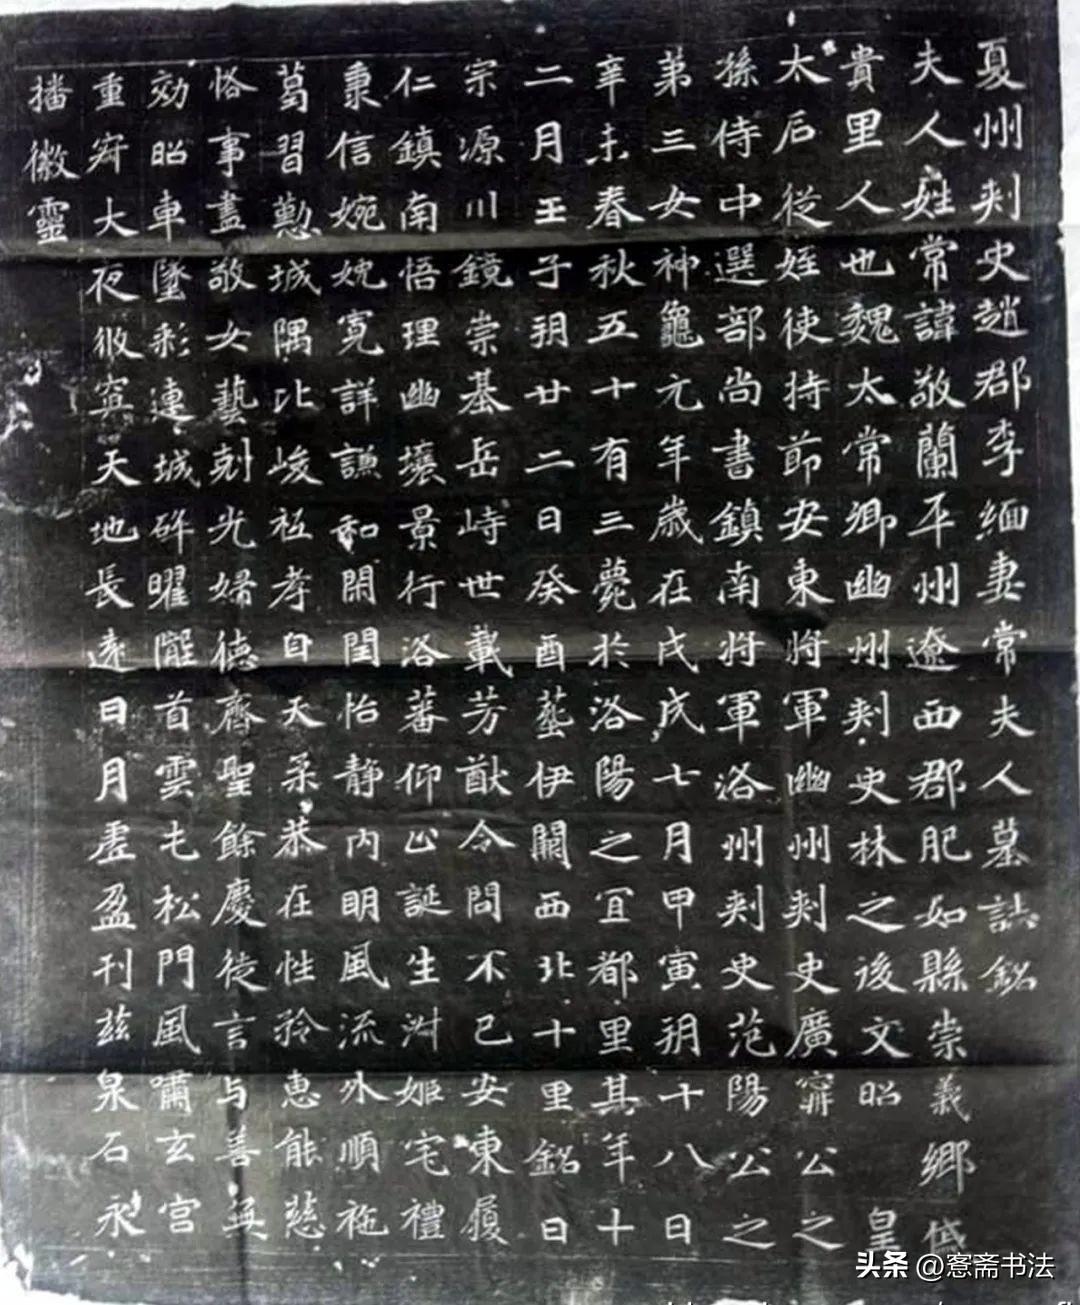 夏州刺史趙郡李緬妻常夫人墓誌銘
夫人姓常諱敬蘭平州遼西郡肥如縣崇義鄉使
貴里人也魏太常卿幽州刺史林之後文昭皇
太后從姪使持節安東將軍幽州刺史廣寧公之
孫侍中選部尚書鎮南將軍洛州刺史范陽公之
第三女神龜元年歲在戊戌七月甲寅朔十八日
辛未春秋五十有三薨於洛陽之宜都里其年十
二月壬子朔廿二日癸酉塟伊闕西北十里銘曰
宗源川鏡崇基岳峙世載芳猷令問不已安東履
仁鎮南悟理幽壤景行洛蕃仰止誕生淑姬宅禮
秉信婉娩寬詳謙和閑閏怡靜內明風流外順袘
葛習懃城隅比峻祗孝自天柔恭在性矜惠能慈
恪事盡敬女藝剋光婦德齊聖餘慶徒言与善無
効昭車墜彩連城碎曜隴首雲乇松門風嘯玄宫
重穸大夜微冥天地長遠日月虛盈刊茲泉石永
播徽靈
头条 @愙斋书法